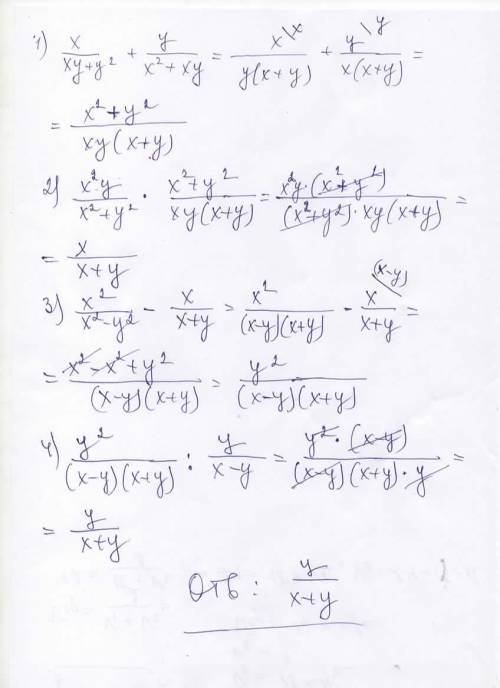 1) x/(xy+y²) + y/(x²+xy) = x\x/(y(x+y)) + y\y/(x(x+y)) =
= (x²+y²)/(xy(x+y))
2) x²y/(x²+y²) · (x²+y²)/(xy(x+y)) = x²y·(x²+y²)/((x²+y²)·xy(x+y)) =
= x/(x+y)
3) x²/(x²-y²) - x/(x+y) = x²/((x-y)(x+y)) - x\(x-y)/(x+y) =
= (x²-x²+y²)/((x-y)(x+y)) = y²/((x-y)(x+y))
4) y²/((x-y)(x+y)) : y/(x-y) = y²·(x-y)/((x-y)(x+y)·y) =
= y/(x+y)
Отв: y/(x+y)